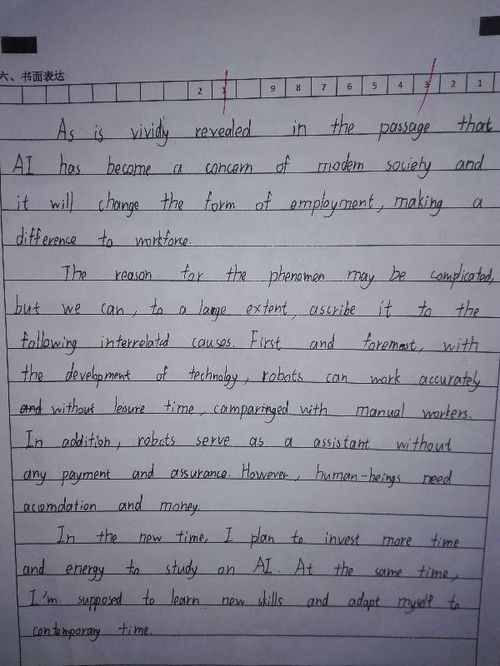 六、书面表达
2 1 9 8 7 6 5 4 3 2 1
As is vividy revealed in the passage that
AI has become a concern of modern society and
it will change the form of employment, making a
difference to workforce.
The reason for the phenomen may be complicated,
but we can, to a large extent, ascribe it to the
following interrelated causes. First and foremost, with
the development of technolgy, robots can work accurately
and without leisure time, camparinged with manual workers.
In addition, robots serve as a assistant without
any payment and assurance. However, human-beings need
acomdation and money.
In the new time, I plan to invest more time
and energy to study on AI. At the same time,
I'm supposed to learn new skills and adapt myself to
contemporary time.